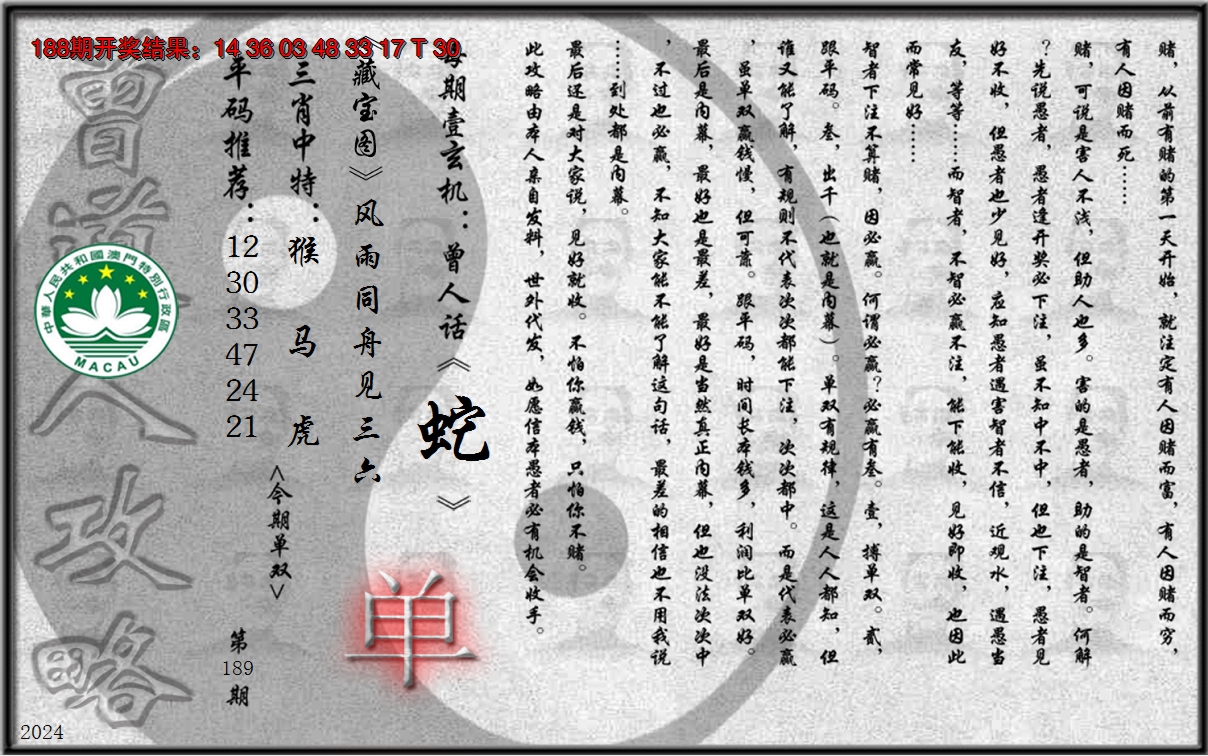 188期开奖结果：14 36 03 48 33 17 T 30
赌，从前有赌的第一天开始，就注定有人因赌而富，有人因赌而穷，
有人因赌而死……
赌，可说是害人不浅，但助人也多。害的是愚者，助的是智者。何解
？先说愚者，愚者逢开奖必下注，虽不知中不中，但也下注，愚者见
好不收，但愚者也少见好，应知愚者遇害智者不信，近观水，遇愚当
友，等等……而智者，不智必赢不注，能下能收，见好即收，也因此
而常见好……
智者下注不算赌，因必赢。何谓必赢？必赢有叁。壹，搏单双。贰，
跟平码。叁，出千（也就是内幕）。单双有规律，这是人人都知，但
谁又能了解，有规则不代表次次都能下注，次次都中。而是代表必赢
，虽单双赢钱慢，但可靠。跟平码，时间长本钱多，利润比单双好。
最后是内幕，最好也是最差，最好是当然真正内幕，但也没法次次中
，不过也必赢，不知大家能不能了解这句话，最差的相信也不用我说
……到处都是内幕。
最后还是对大家说，见好就收。不怕你赢钱，只怕你不赌。
此攻略由本人亲自发料，世外代发，如愿信本愚者必有机会收手。
每期壹玄机：曾人话《蛇》
《藏宝图》风雨同舟见三六
三肖中特：猴 马 虎
平码推荐：12 30 33 47 24 21
<今期单双>
单
第189期
曾道人攻略
中華人民共和國澳門特別行政區
MACAU
2024